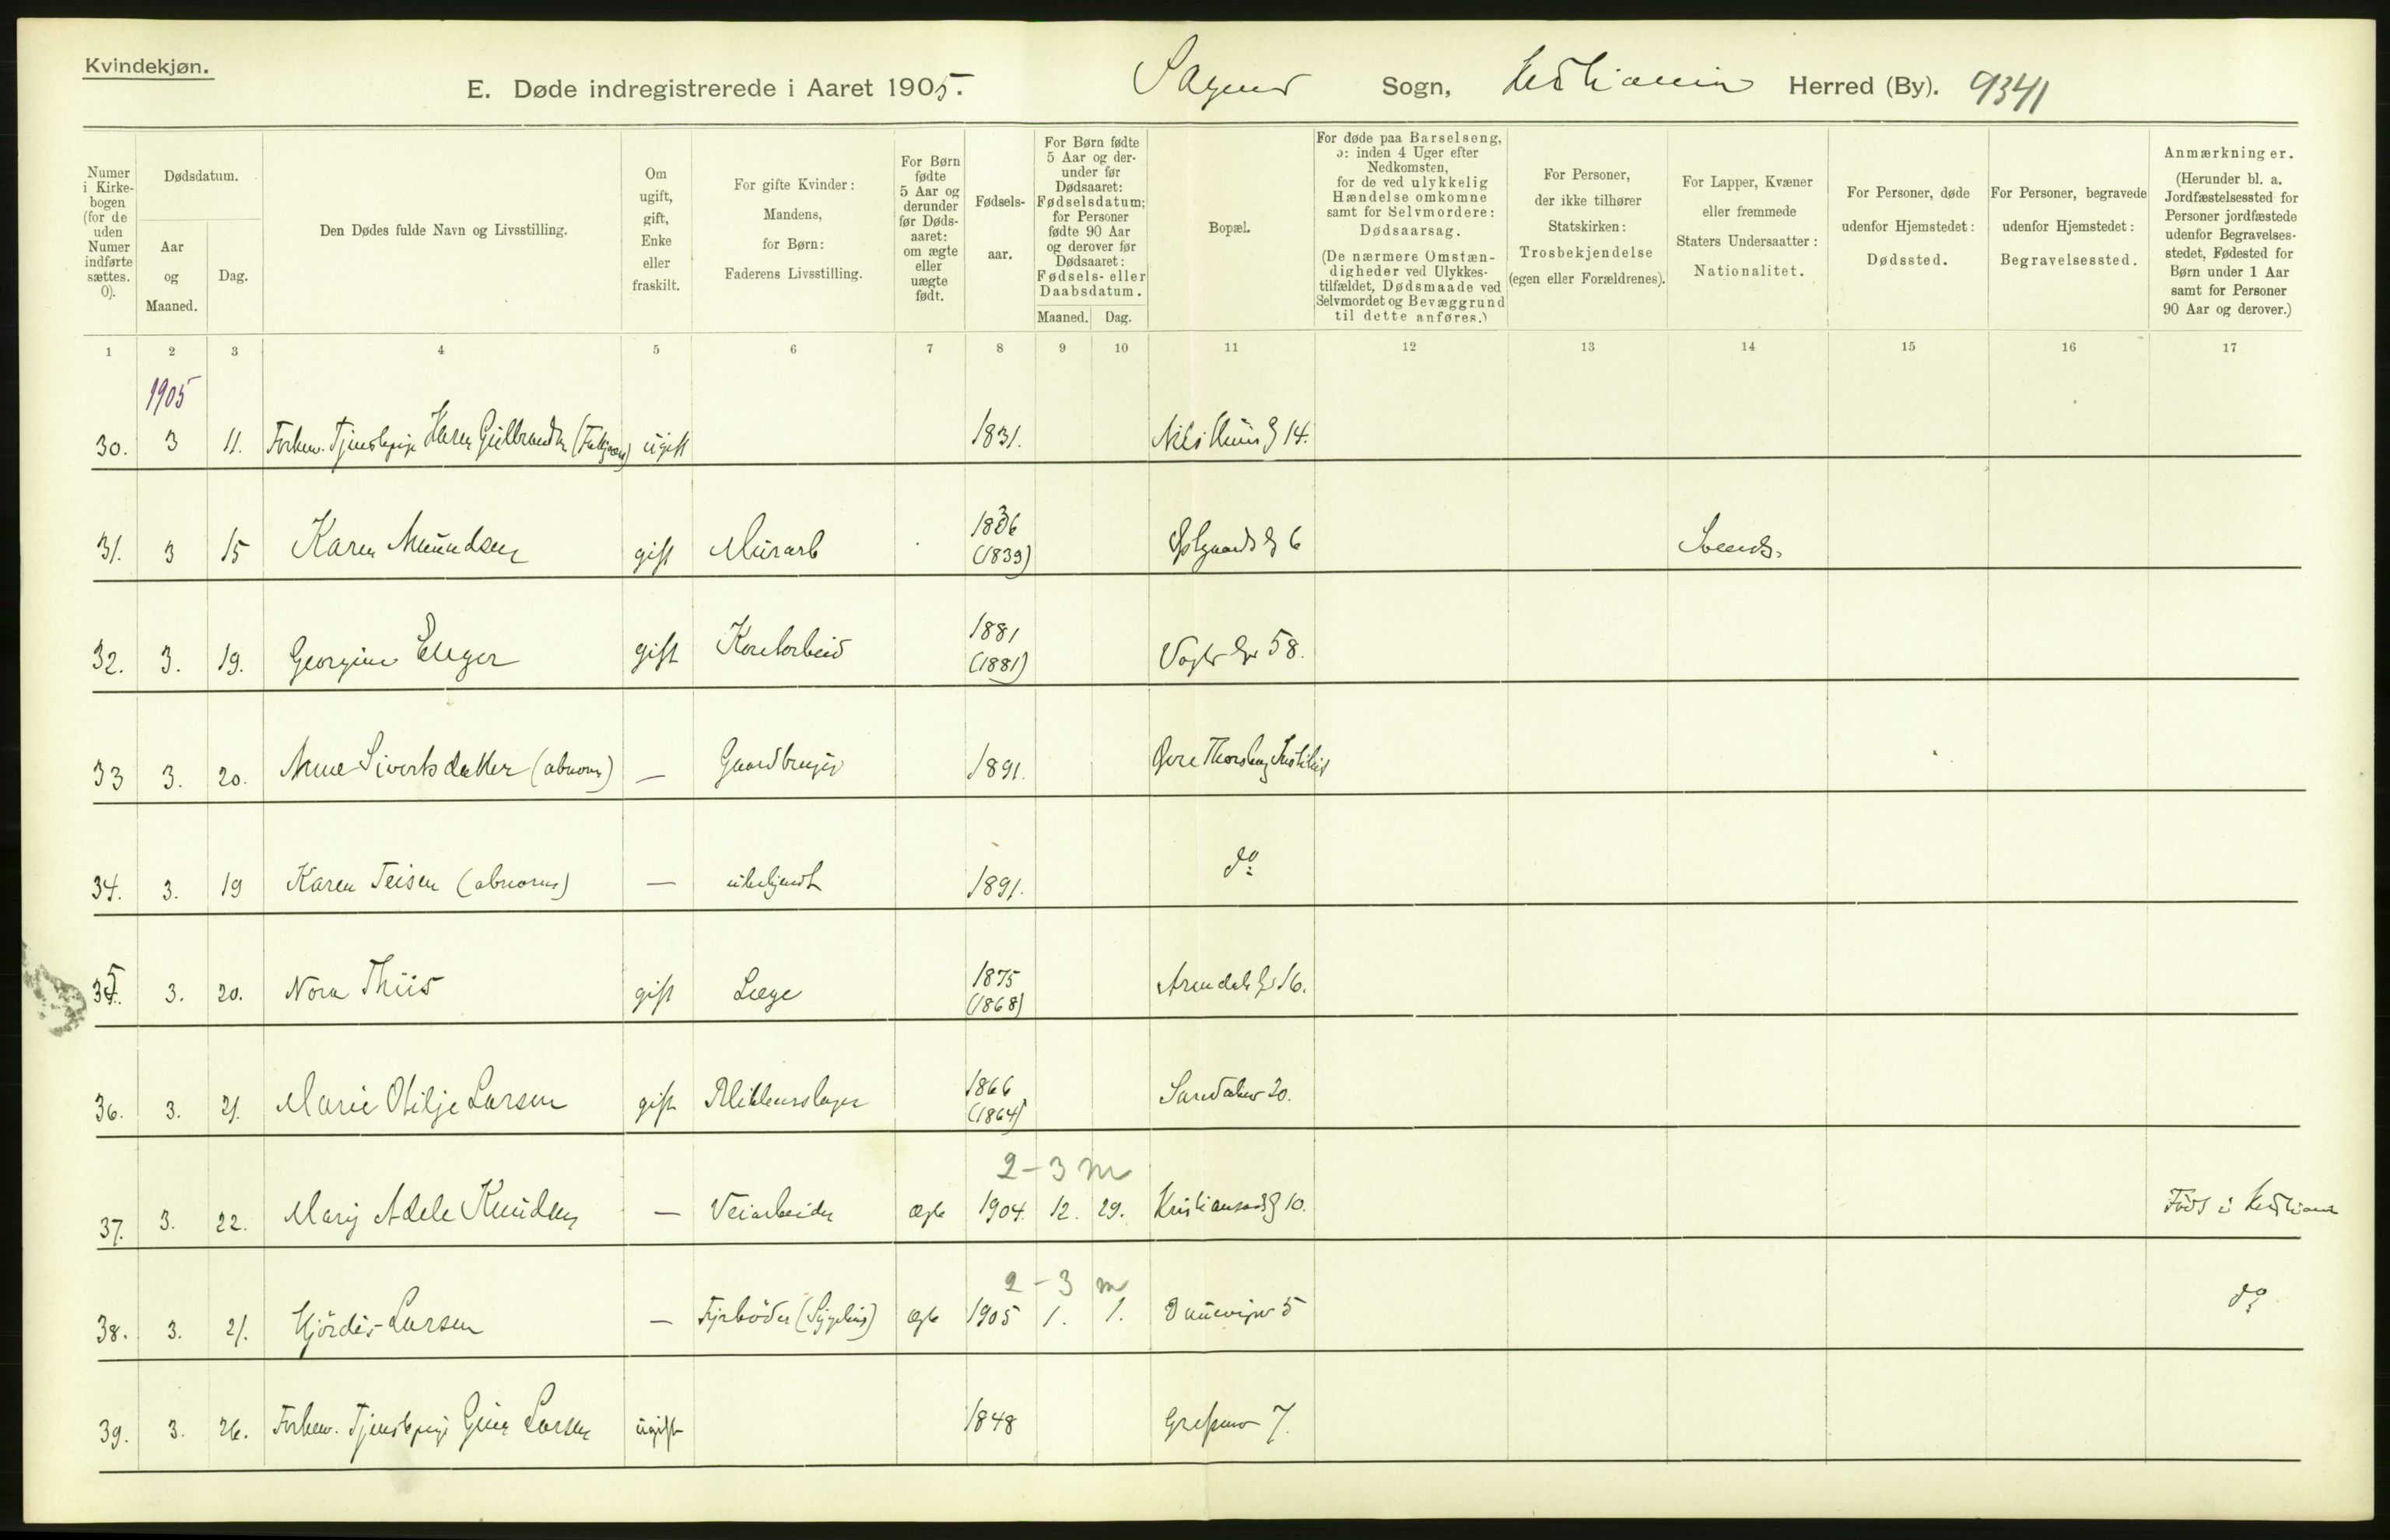 Kvindekjøn.
E. Døde indregistrerede i Aaret 1905. Sagene Sogn, Kristiania Herred (By). 9341
Numer i Kirkebogen (for de uden Numer indførte sættes. 0).
Dødsdatum.
Aar og Maaned.
Dag.
Den Dødes fulde Navn og Livsstilling.
Om ugift, gift, Enke eller fraskilt.
For gifte Kvinder: Mandens, for Børn: Faderens Livsstilling.
For Børn fødte 5 Aar og derunder før Dødsaaret: om ægte eller uægte født.
Fødselsaar.
For Børn fødte 5 Aar og derunder før Dødsaaret: Fødselsdatum; for Personer fødte 90 Aar og derover før Dødsaaret: Fødsels- eller Daabsdatum.
Maaned. Dag.
Bopæl.
For døde paa Barselseng, ɔ: inden 4 Uger efter Nedkomsten, for de ved ulykkelig Hændelse omkomne samt for Selvmordere: Dødsaarsag.
(De nærmere Omstændigheder ved Ulykkestilfældet, Dødsmaade ved Selvmordet og Bevæggrund til dette anføres.)
For Personer, der ikke tilhører Statskirken: Trosbekjendelse (egen eller Forældrenes).
For Lapper, Kvæner eller fremmede Staters Undersaatter: Nationalitet.
For Personer, døde udenfor Hjemstedet: Dødssted.
For Personer, begravede udenfor Hjemstedet: Begravelsessted.
Anmærkninger.
(Herunder bl. a. Jordfæstelsessted for Personer jordfæstede udenfor Begravelsesstedet, Fødested for Børn under 1 Aar samt for Personer 90 Aar og derover.)
1 2 3 4 5 6 7 8 9 10 11 12 13 14 15 16 17
1905
30. 3 11. Forhenv. Tjenestepige Karen Gulbrandsen ugift 1831. Nils Huus g 14.
31. 3 15 Karen Amundsen gift Murarb 1836 (1839) 6 Svensk.
32. 3. 19. Georgine gift 1881 (1881) Vogts g 58.
33 3. 20. Anne Sivertsdatter (abnorm) — Gaardbruger 1891. Thorshaug Institut
34. 3. 19 Karen Teisen (abnorm) — ubekjendt 1891. do
35. 3. 20. Nora Thiis gift Læge 1875 (1868) Arendals g 16.
36. 3. 21. Marie Otilje Larsen gift Blikkenslager 1866 (1864) Sandaker 20.
2-3 m
37. 3. 22. Mary Adele Knudsen — Veiarbeider ægte 1904. 12. 29. Kristiansands g 10. Født i Kristiania
2-3 m
38. 3. 21. Hjördis Larsen — Fyrböder (Sygehus) ægte 1905 1. 1. 5 do
39. 3. 26. Forhenv. Tjenestepige Larsen ugift 1848 Grefsenv 7.